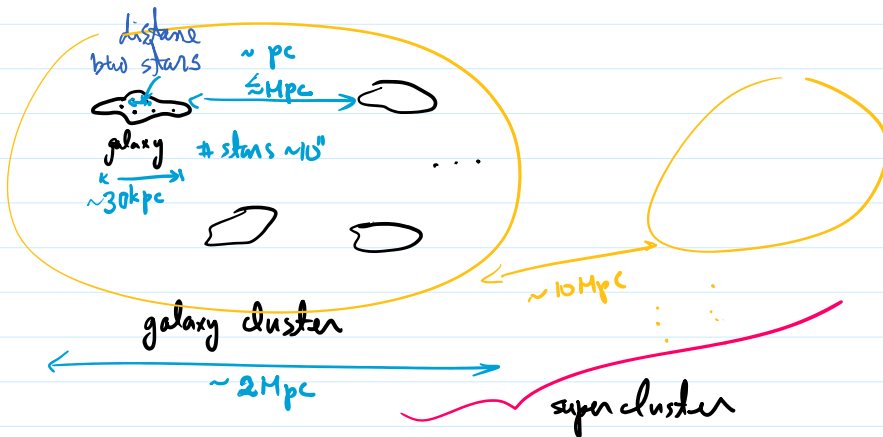 distane
btw stars
~ pc
≲ Mpc
galaxy
# stars ~10¹¹
~30kpc
...
~10Mpc
galaxy cluster
~ 2Mpc
supercluster